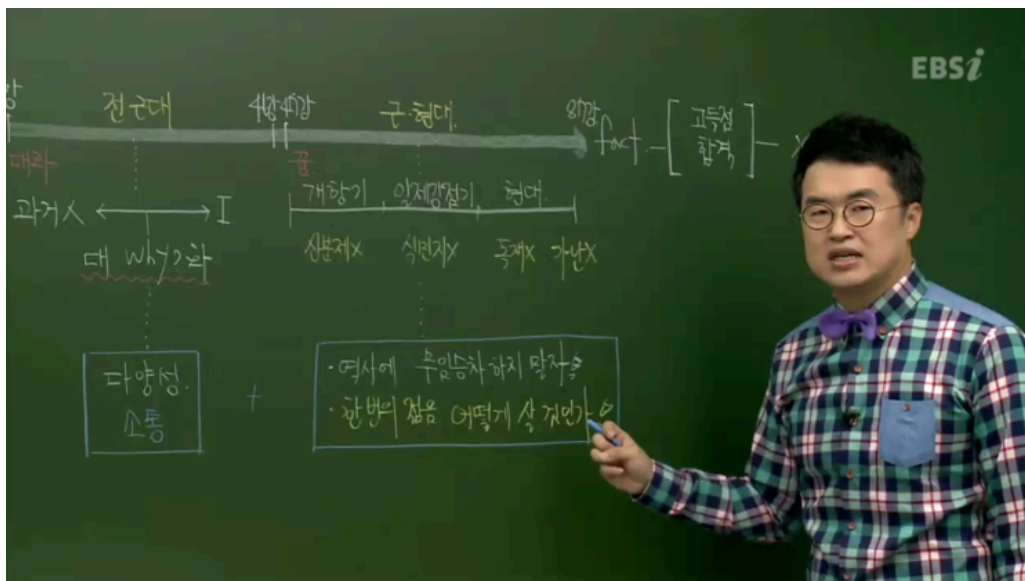 EBSi
강 전근대 41강 42강 근·현대. 81강
fact. - [고득점 합격] - X
대화 꿈
과거人 ↔ I
개항기 일제강점기 현대.
대 why? 화
신분제X 식민지X 독재X 가난X
다양성.
소통
+
· 역사에 무임승차 하지 말자
· 한 번의 젊음 어떻게 살 것인가